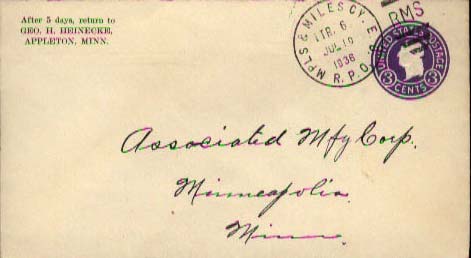 After 5 days, return to
GEO. H. HEINECKE,
APPLETON, MINN.
MPLS & MILES CY. E. D.
TR. 6
JUL 19
1936
R.P.O.
RMS
UNITED STATES POSTAGE
3 3
CENTS
Associated Mfg Corp.
Minneapolis
Minn.